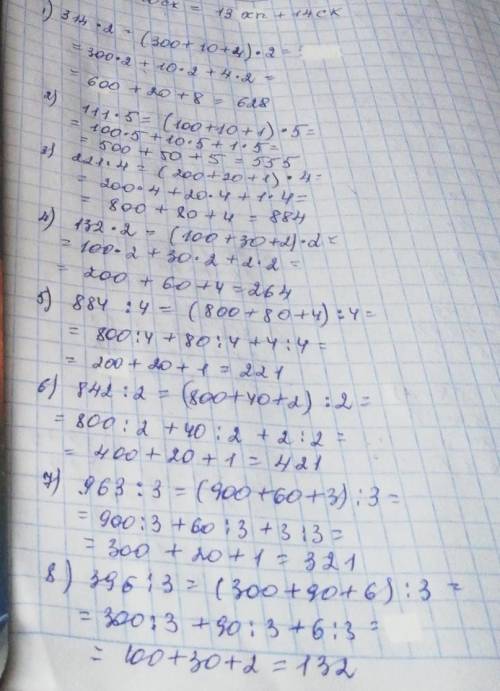 = 13 хл + 14 ск
1) 314 · 2 = (300+10+4) · 2 =
= 300·2 + 10·2 + 4·2 =
= 600 + 20 + 8 = 628
2) 111·5 = (100+10+1) · 5 =
= 100·5 + 10·5 + 1·5 =
= 500 + 50 + 5 = 555
3) 221·4 = (200+20+1) · 4 =
= 200·4 + 20·4 + 1·4 =
= 800 + 80 + 4 = 884
4) 132·2 = (100+30+2)·2 =
= 100·2 + 30·2 + 2·2 =
= 200 + 60 + 4 = 264
5) 884 : 4 = (800+80+4) : 4 =
= 800:4 + 80:4 + 4:4 =
= 200 + 20 + 1 = 221
6) 842 : 2 = (800+40+2) : 2 =
= 800 : 2 + 40 : 2 + 2 : 2 =
= 400 + 20 + 1 = 421
7) 963 : 3 = (900+60+3) : 3 =
= 900:3 + 60:3 + 3:3 =
= 300 + 20 + 1 = 321
8) 396 : 3 = (300+90+6) : 3 =
= 300:3 + 90:3 + 6:3 =
= 100+30+2 = 132